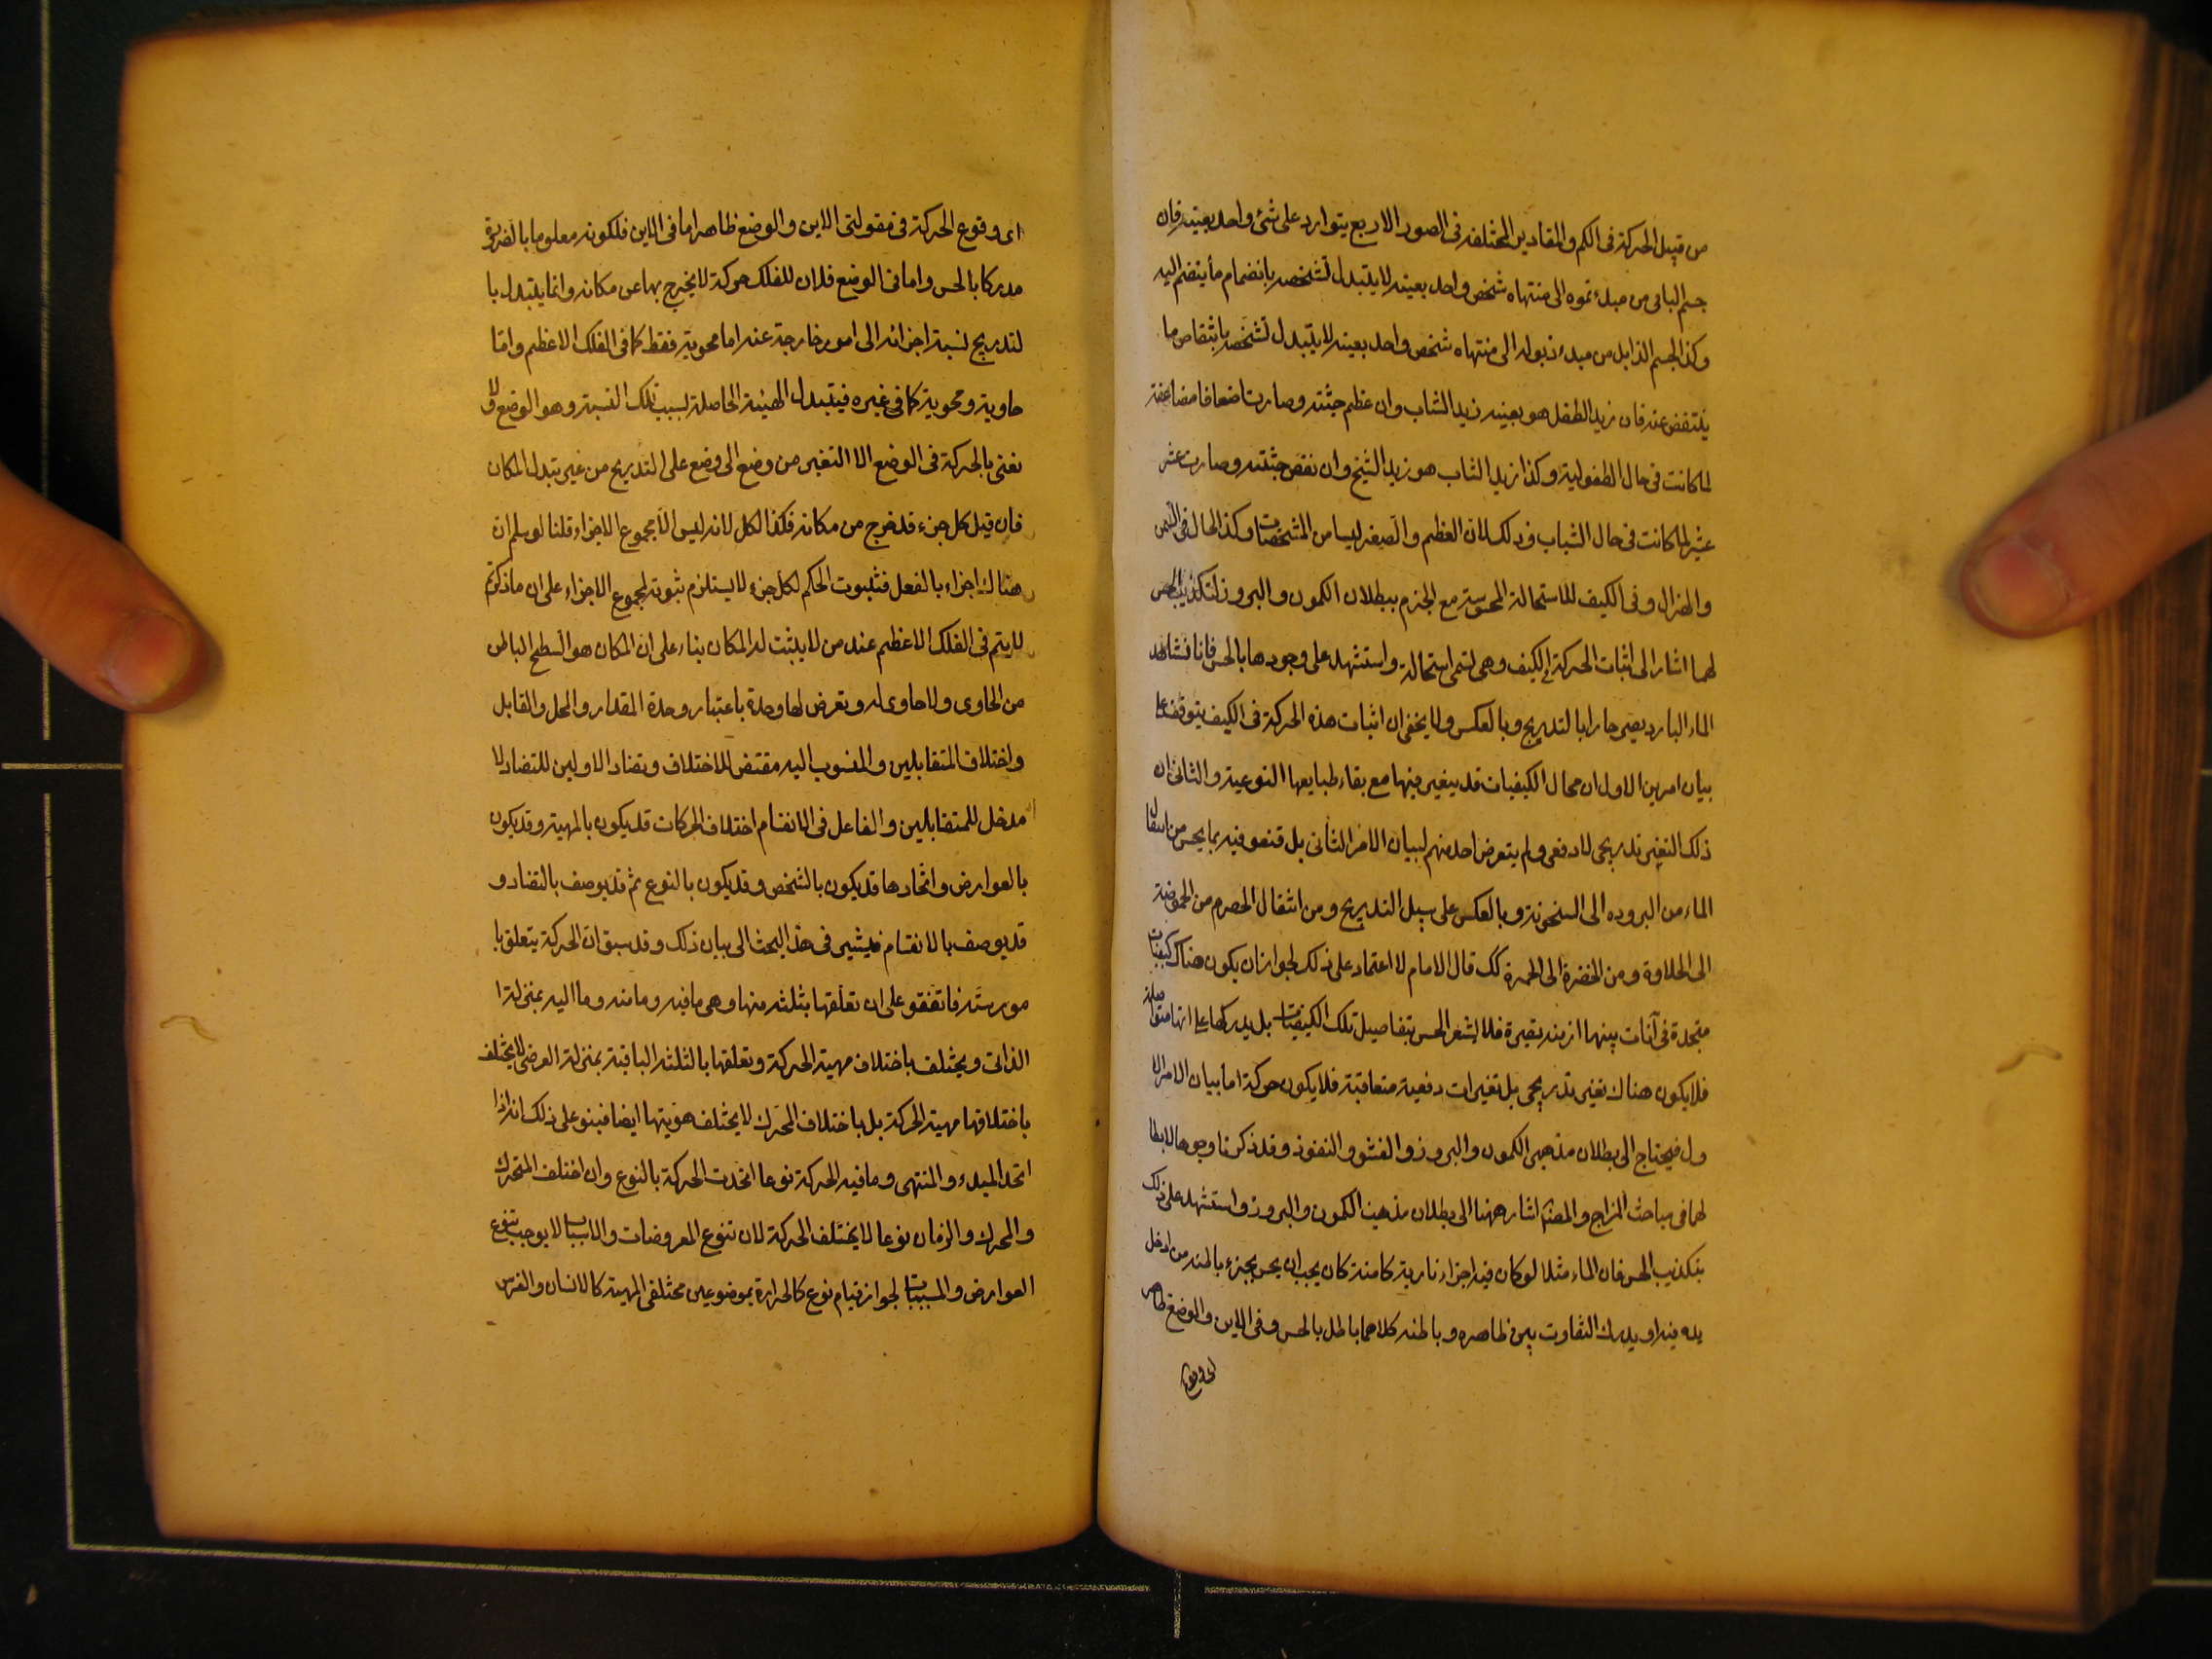 من قبيل الحركة فى الكم والمقادير المختلفة فى الصور الاربع يتوارد على شئ واحد بعينه فان
جسم النامى من مبدء نموه الى منتهاه شخص واحد بعينه لا يتبدل تشخصه بانضمام ما ينضم اليه
وكذا الجسم الذابل من مبدء ذبوله الى منتهاه شخص واحد بعينه لا يتبدل تشخصه بانتقاص ما
ينتقض عنه فان زيد الطفل هو بعينه زيد الشاب وان عظم جثته وصارت اضعافا مضاعفة
لما كانت فى حال الطفولية وكذا زيد الشاب هو زيد الشيخ وان نقص جثته وصارت عشر
عشير لما كانت فى حال الشباب وذلك لان العظم والصغر ليسا من المشخصات وكذا الحال فى السمن
والهزال وفى الكيف للاستحالة المحسوسة مع الجزم ببطلان الكمون والبروز لتكذيب الحس
لهما اشار الى اثبات الحركة فى الكيف وهى تسمى استحالة واستشهد على وجودها بالحس فانا نشاهد
الماء البارد يصير حارا بالتدريج وبالعكس ولا يخفى ان اثبات هذه الحركة فى الكيف يتوقف على
بيان امرين الاول ان محال الكيفيات قد يتغير فيها مع بقاء طبايعها النوعية والثانى ان
ذلك التغير تدريجى لا دفعى ولم يتعرض احد منهم لبيان الامر الثانى بل قنعو فيه بما يحس من انتقال
الماء من البروده الى السخونة وبالعكس على سبيل التدريج ومن انتقال الحصرم من الحموضة
الى الحلاوة ومن الخضرة الى الحمرة كك قال الامام لا اعتماد على ذلك لجواز ان يكون هناك كيفيات
متجددة فى آنات بينها ازمنة قصيرة فلا يشعر الحس بتفاصيل تلك الكيفيات بل يدركها على انها متواصلة
فلا يكون هناك تغير تدريجى بل تغيرات دفعية متعاقبة فلا يكون حركة اما بيان الامر الا
ول فيحتاج الى بطلان مذهبى الكمون والبروز والفشو والنفوذ وقد ذكرنا وجوها لابطا
لهما فى مباحث المزاج والمصنف اشار ههنا الى بطلان مذهب الكمون والبروز واستشهد على ذلك
بتكذيب الحس فان الماء مثلا لو كان فيه اجزاء نارية كامنة كان يجب ان يحس بحر باطنه من ادخل
يده فيه او يدرك التفاوت بين ظاهره وباطنه كلاهما باطل بالحس وفى الاين والوضع ظاهر
اى وقوع
اى وقوع الحركة فى مقولتى الاين والوضع ظاهر اما فى الاين فلكونه معلوما بالضرورة
مدركا بالحس واما فى الوضع فلان للفلك حركة لا يخرج بها عن مكانه وانما يتبدل با
لتدريج نسبة اجزائه الى امور خارجة عنه اما محوية فقط كما فى الفلك الاعظم واما
حاوية ومحوية كما فى غيره فيتبدل الهيئة الحاصلة بسبب تلك النسبة وهو الوضع ولا
نعنى بالحركة فى الوضع الا التغير من وضع الى وضع على التدريج من غير تبدل المكان
فان قيل كل جزء قد خرج من مكانه فكذا الكل لانه ليس الا مجموع الاجزاء قلنا لو سلم ان
هناك اجزاء بالفعل فثبوت الحكم لكل جزء لا يستلزم ثبوته لمجموع الاجزاء على ان ما ذكرتم
لا يتم فى الفلك الاعظم عند من لا يثبت له المكان بناء على ان المكان هو السطح الباطن
من الحاوى ولا حاوى له وتعرض لها وحدة باعتبار وحدة المقدار والمحل والقابل
واختلاف المتقابلين والمنسوب اليه مقتض للاختلاف وتضاد الاولين للتضاد لا
مدخل للمتقابلين والفاعل فى الانقسام اختلاف الحركات قد يكون بالمهية وقد يكون
بالعوارض واتحادها قد يكون بالشخص وقد يكون بالنوع ثم قد يوصف بالتضاد و
قد يوصف بالانقسام فيشير فى هذا البحث الى بيان ذلك وقد سبق ان الحركة يتعلق با
مور ستة فاتفقو على ان تعلقها بثلثة منها وهى ما فيه وما منه وما اليه بمنزلة ا
الذاتى ويختلف باختلاف مهية الحركة وتعلقها بالثلثة الباقية بمنزلة العرضى لا يختلف
باختلافها مهية الحركة بل باختلاف المحرك لا يختلف هويتها ايضا فبنو على ذلك انه اذا
اتحد المبدء والمنتهى وما فيه الحركة نوعا اتحدت الحركة بالنوع وان اختلف المتحرك
والمحرك والزمان نوعا لا يختلف الحركة لان تنوع المعروضات والاسباب لا يوجب تنوع
العوارض والمسببات لجواز قيام نوع كالحرارة بموضوعين مختلفى المهية كالانسان والفرس